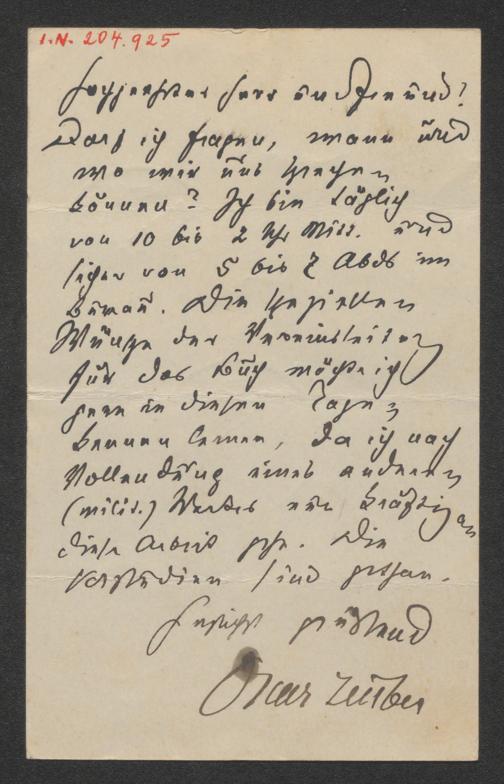 I.N. 204.925
Hochgeehrter Herr und Freund!
Darf ich fragen, wann und
wo wir uns sprechen
können? Ich bin täglich
von 10 bis 2 Uhr Mitt. und
sicher von 5 bis 7 Abds im
Bureau. Die speciellen
Wünsche der Vereinsleitung
für das Buch möchte ich
gern in diesen Tagen
kennen lernen, da ich nach
Vollendung eines anderen
(milit.) Werkes nun kräftig an
diese Arbeit gehe. Die
Vorstudien sind gethan.
Herzlichst grüßend
Oscar Teuber